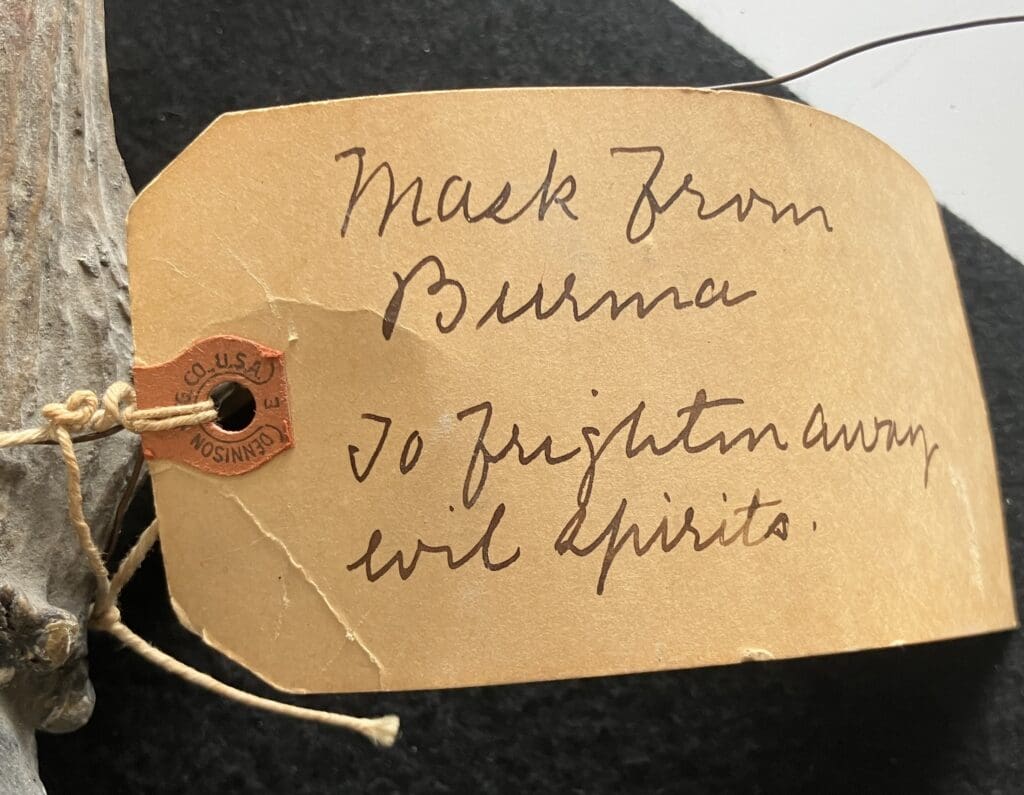 Mask From
Burma
To Frighten away
evil spirits.
DENNISON G.CO., U.S.A.